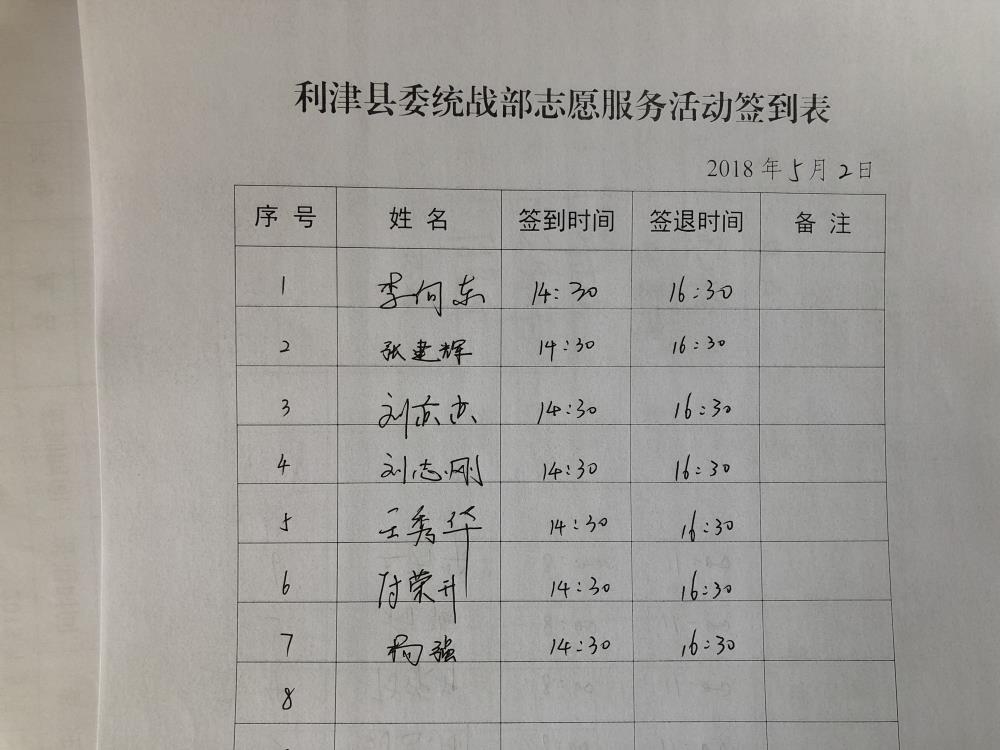 利津县委统战部志愿服务活动签到表
2018 年 5 月 2 日
序 号 姓 名 签到时间 签退时间 备 注
1 李向东 14:30 16:30
2 张建辉 14:30 16:30
3 刘 14:30 16:30
4 刘志刚 14:30 16:30
5 王秀华 14:30 16:30
6 付荣升 14:30 16:30
7 杨强 14:30 16:30
8